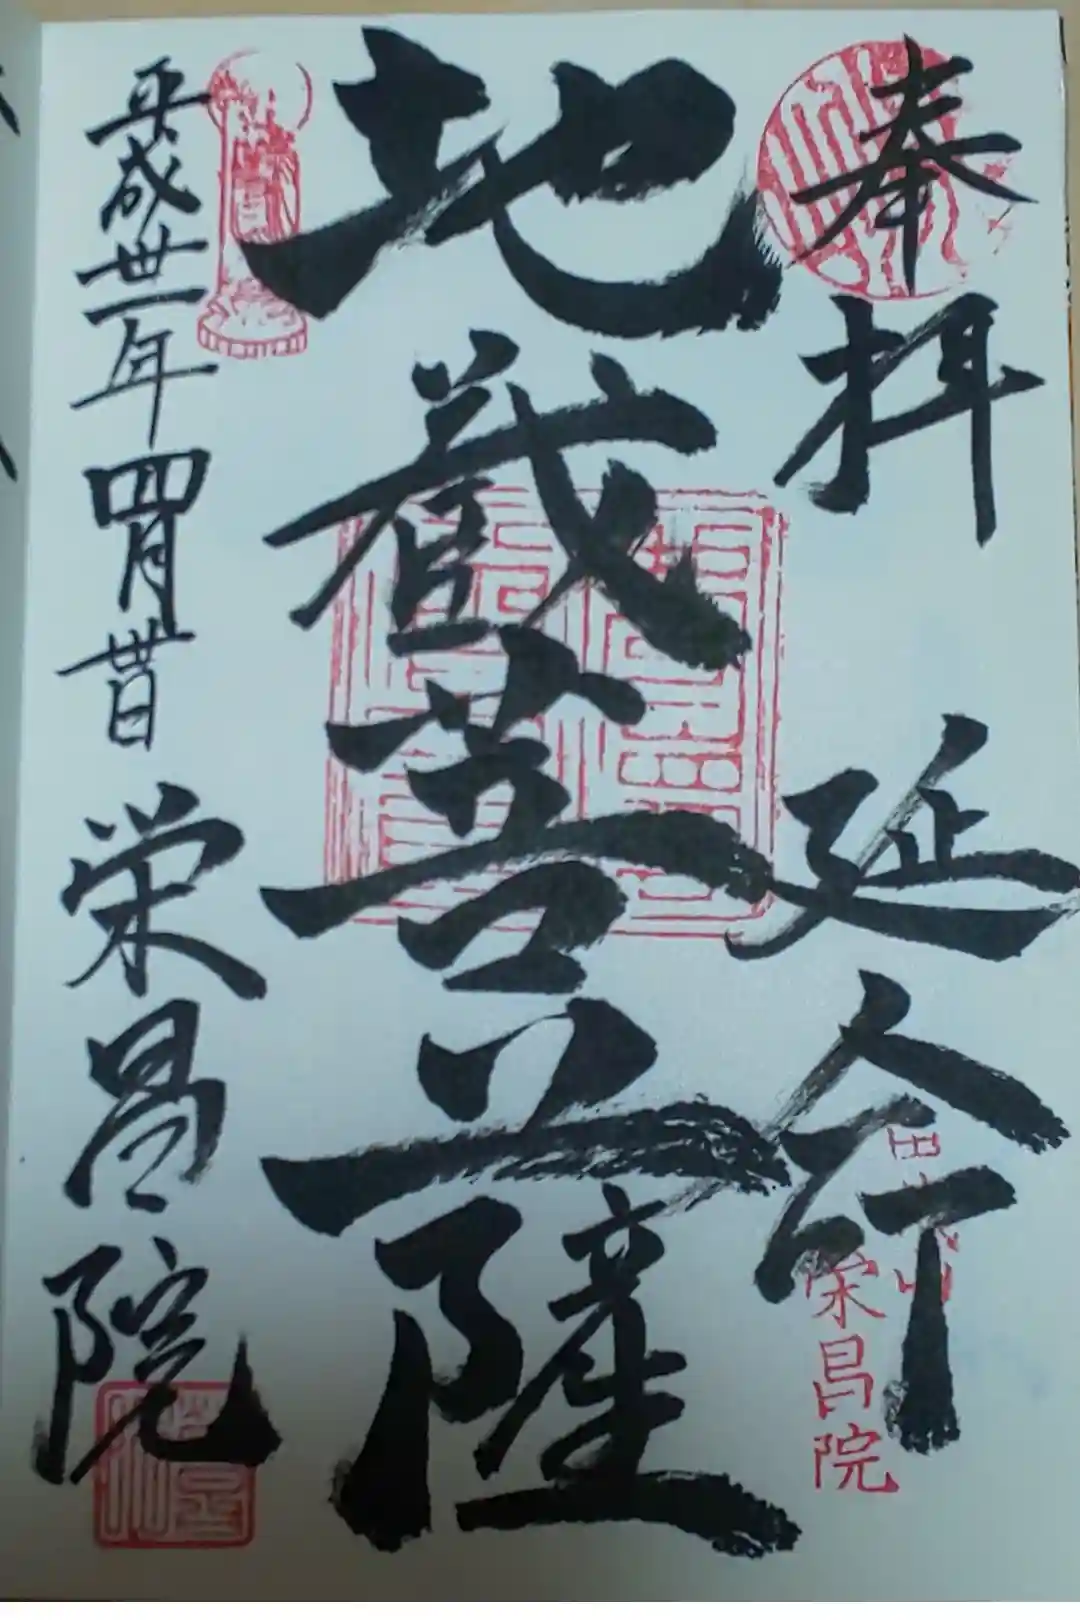 奉拝 延命
地蔵菩薩
平成卅一年四月廿日 栄昌院
栄昌院